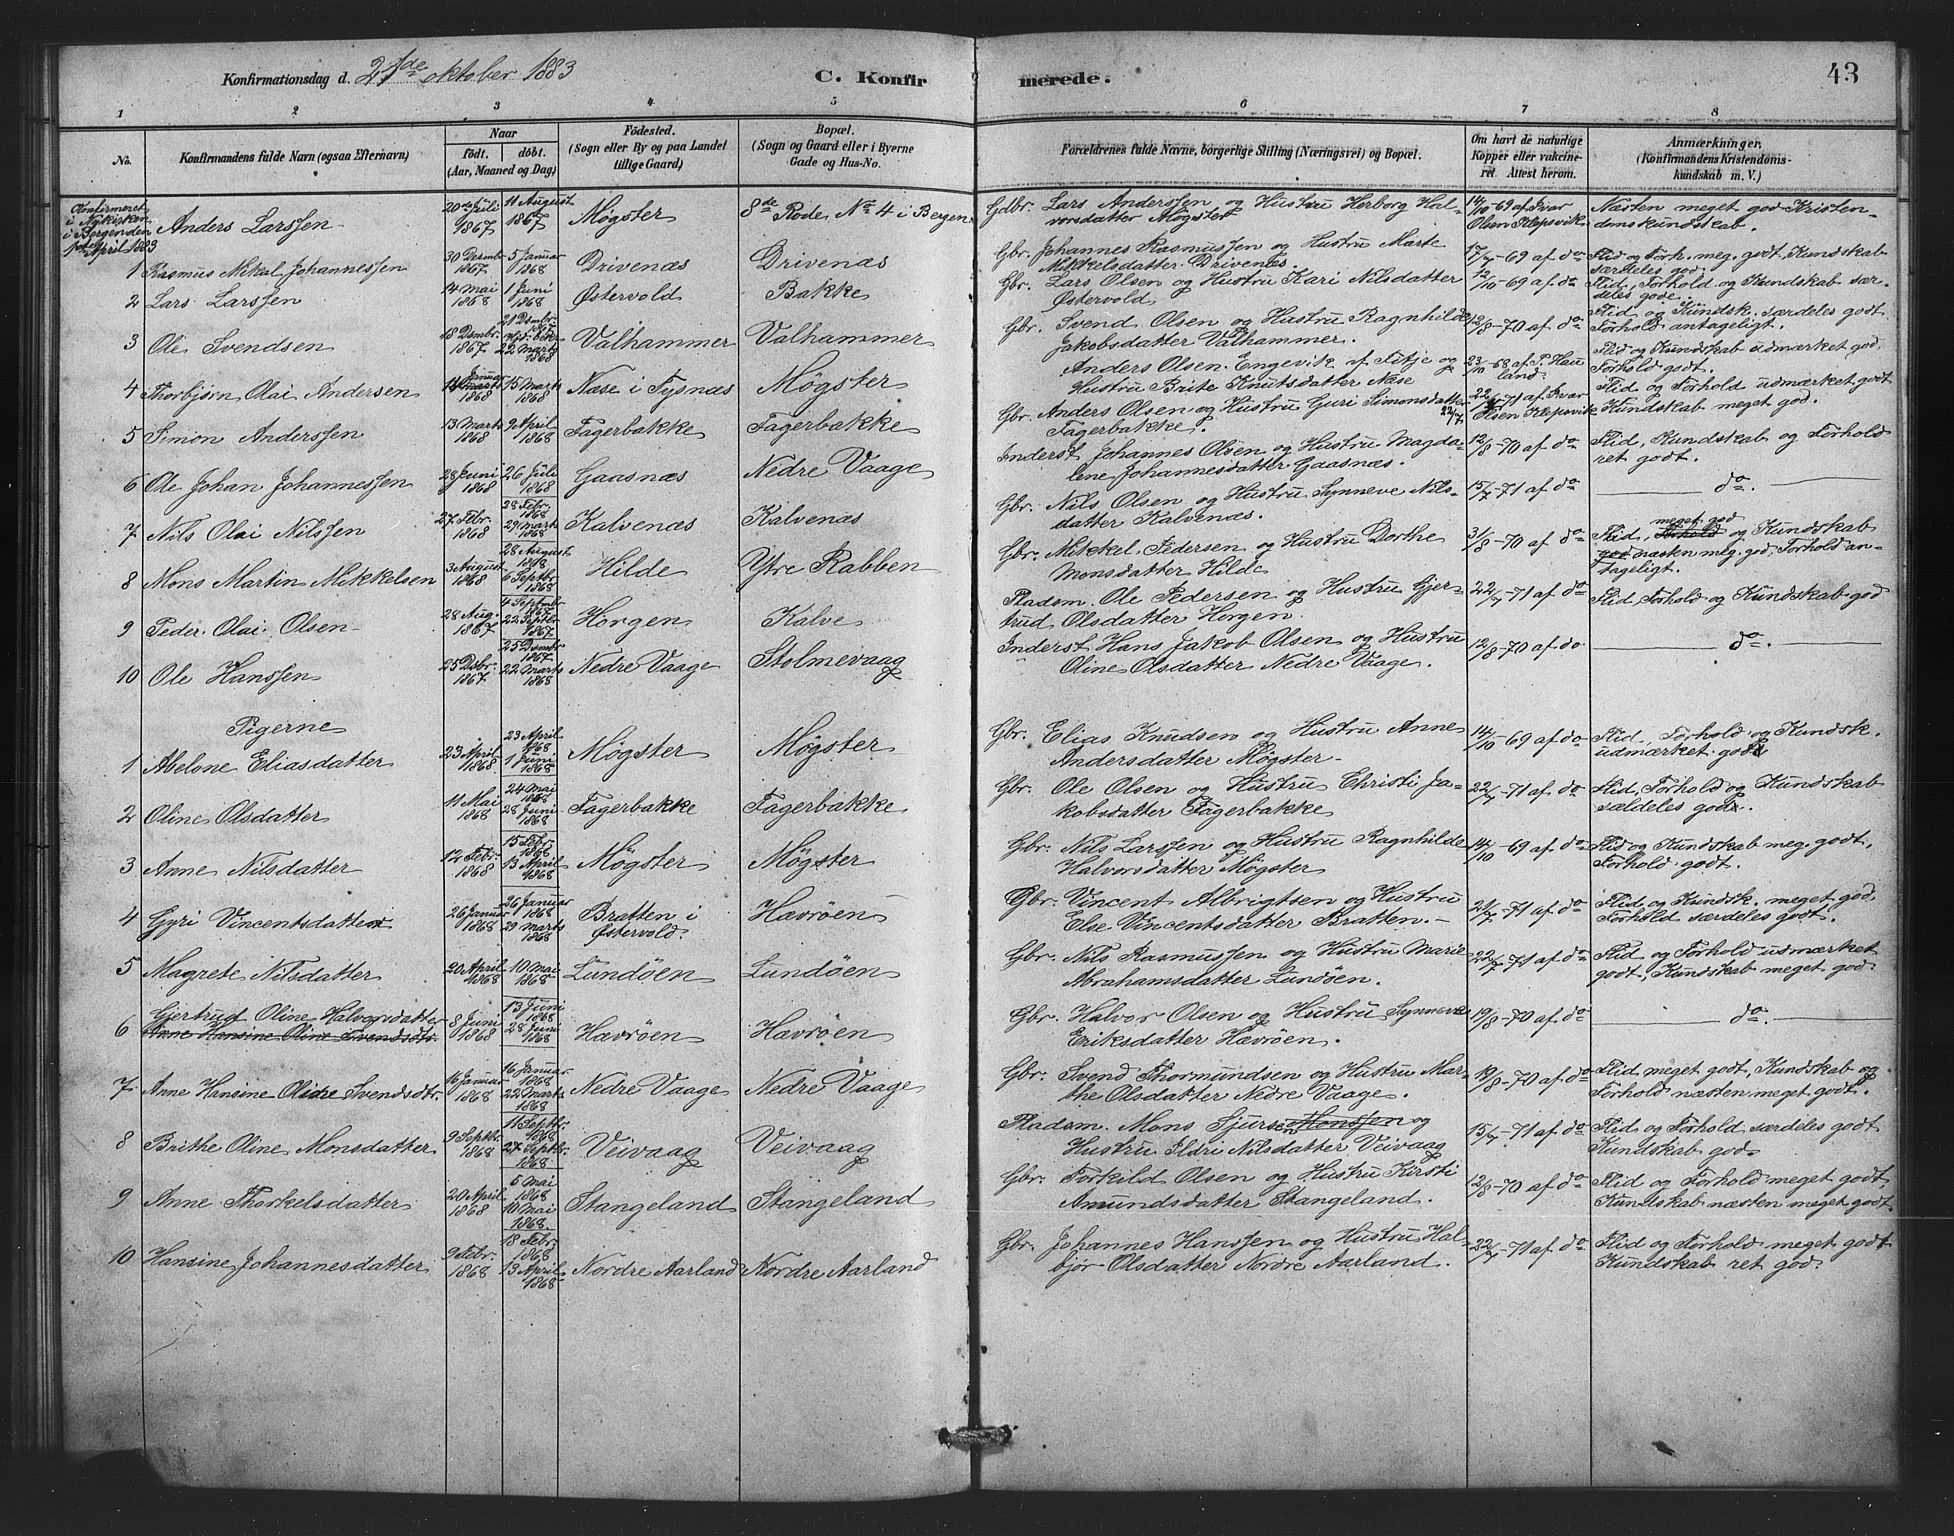 Konfirmationsdag d. 21de oktober 1883 C. Konfir merede. 43
1 2 3 4 5 6 7 8
No. Konfirmandens fulde Navn (ogsaa Efternavn) Naar
født. døbt.
(Aar, Maaned og Dag)
Fødested.
(Sogn eller By og paa Landet
tillige Gaard)
Bopæl.
(Sogn og Gaard eller i Byerne
Gade og Hus-No.
Forældrenes fulde Navne, borgerlige Stilling (Næringsvei) og Bopæl.
Om havt de naturlige
Kopper eller vakcine-
ret. Attest herom.
Anmærkninger,
(Konfirmandens Kristendoms-
kundskab m. V.)
Konfirmeret
i Nykirken
i Bergen den
April 1883
Anders Larssen 20de Juli 1867 11 August 1867 Møgster 8de Rode, No 4 i Bergen
Gdbr. Lars Anderssen og Hustru Herborg Hal-
vorsdatter Møgster
14/10-69 af Ivar
Olsen Klepsvik
Næsten meget god Kristen-
domskundskab.
1 Rasmus Mikal Johannessen 30 Desmbr 1867 5 Januar 1868 Drivenæs Drivenæs
Gbr. Johannes Rasmussen og Hustru Marte
Mikkelsdatter Drivenæs.
17/7-69 af do
Flid og Forh. meg. godt Kundskab
særdeles god.
2 Lars Larssen 14 Mai 1868 1 Juni 1868 Østervold Bakke
Gbr. Lars Olsen og Hustru Kari Nilsdatter
Østervold
12/10-69 af do
Flid, Forhold og Kundskab sær-
deles gode.
3 Ole Svendsen 18 Dsmbr. 1867 21 Dsmbr. 1867 22 Marts 1868 Valhammer Valhammer
Gbr. Svend Olsen og Hustru Ragnhilde
Jakobsdatter Valhammer.
12/8-70 af do
Flid og Kundsk. særdeles godt
Forhold antageligt.
4 Thorbjørn Olai Andersen 14 Januar 1868 15 Marts 1868 Næse i Tysnæs Møgster
Anders Olsen Engevik af Fitje og
Hustru Brite Knutsdatter Næse
23/10-68 af P. Hau
land
Flid og Kundskab udmærket god
Forhold godt.
5 Simon Anderssen 13 Marts 1868 9 April 1868 Fagerbakke Fagerbakke
Gbr. Anders Olsen og Hustru Guri Simonsdatter
Fagerbakke.
-71 af Ivar
Olsen Klepsvik
Flid og Forhold udmærket godt
Kundskab meget god.
6 Ole Johan Johannessen 28 Juni 1868 26 Juli 1868 Gaasnæs Nedre Vaage
Inderst Johannes Olsen og Hustru Magda-
lene Johannesdatter Gaasnæs.
12/8-70 af do
Flid, Kundskab og Forhold
ret godt.
7 Nils Olai Nilssen 27 Febr. 1868 28 Febr. 1868 29 Marts 1868 Kalvenæs Kalvenæs
Gbr. Nils Olsen og Hustru Synneve Nils-
datter Kalvenæs.
15/7-71 af do
do.
8 Mons Martin Mikkelsen 3 August 1868 28 August 1868 6 Septbr 1868 Hilde Ytre Rabben
Gbr. Mikkel Pedersen og Hustru Dorthe
Monsdatter Hilde
31/8-70 af do
Flid, meget god Forhold og Kundskab
god næsten meg. god Forhold an-
tageligt.
9 Peder Olai Olsen 28 Aug. 1867 4 Septmbr 1867 22 Septbr 1867 Horgen Kalve
Pladsm. Ole Pedersen og Hustru Gjer-
trud Olsdatter Horgen
22/7-71 af do
Flid, Forhold og Kundskab god
10 Ole Hanssen 25 Dsbr. 1867 25 Dsmbr 1867 22 Marts 1868 Nedre Vaage Stolmevaag
Inderst Hans Jakob Olsen og Hustru
Oline Olsdatter Nedre Vaage.
12/8-70 af do
do.
Pigerne
1 Abelone Eliasdatter 23 April 1868 23 April 1868 1 Juni 1868 Møgster Møgster
Gbr. Elias Knudsen og Hustru Anne
Andersdatter Møgster
14/10-69 af do
Flid, Forhold og Kundsk.
udmærket god
2 Oline Olsdatter 11 Mai 1868 24 Mai 1868 28 Juni 1868 Fagerbakke Fagerbakke
Gbr. Ole Olsen og Hustru Christi Ja-
kobsdatter Fagerbakke
22/7-71 af do
Flid, Forhold og Kundskab
sældeles gode.
3 Anne Nilsdatter 12 Febr. 1868 15 Febr. 1868 13 April 1868 Møgster Møgster
Gbr. Nils Larssen og Hustru Ragnhilde
Halvorsdatter Møgster
14/10-69 af do
Flid og Kundskab meg. godt,
Forhold godt.
4 Gyri Vincentsdatter 26 Januar 1868 26 Januar 1868 29 Marts 1868 Bratten i
Østervold. Hævrøen
Gbr. Vincent Albrigtsen og Hustru
Else Vincentsdatter Bratten.
21/7-71 af do
Flid og Kundsk. meget god,
Forhold særdeles godt.
5 Magrete Nilsdatter 20 April 1868 10 Mai 1868 Lundøen Lundøen
Gbr. Nils Rasmussen og Hustru Marie
Abrahamsdatter Lundøen.
22/7-71 af do
Flid og Forhold udmærket
godt, Kundskab meget god
6 Gjertrud Oline Halvorsdatter
Anne Hansine Oline Svendsdtr. 8 Juni 1868 13 Juni 1868 28 Juni 1868 Hævrøen Hævrøen
Gbr. Halvor Olsen og Hustru Synneve
Eriksdatter Hævrøen.
19/8-70 af do
do.
7 Anne Hansine Oline Svendsdtr. 16 Januar 1868 16 Januar 1868 22 Marts 1868 Nedre Vaage Nedre Vaage
Gbr. Svend Thormundsen og Hustru Mar-
the Olsdatter Nedre Vaage.
19/8-70 af do
Flid meget godt, Kundskab og
Forhold næsten meget godt.
8 Brithe Oline Monsdatter 9 Septbr. 1868 11 Septbr. 1868 27 Septbr. 1868 Veivaag Veivaag
Pladsm. Mons Sjursen Monssen og
Hustru Eldri Nilsdatter Veivaag
15/7-71 af do
Flid og Forhold særdeles godt
Kundskab god
9 Anne Thorkelsdatter 20 April 1868 5 Mai 1868 10 Mai 1868. Stangeland Stangeland
Gbr. Torkild Olsen og Hustru Kirsti
Amundsdatter Stangeland.
12/8-70 af do
Flid og Forhold meget godt,
Kundskab næsten meget godt
10 Hansine Johannesdatter 9 Febr. 1868 18 Febr. 1868 13 April 1868 Nordre Aarland Nordre Aarland
Gbr. Johannes Hanssen og Hustru Hal-
bjør Olsdatter Nordre Aarland.
22/7-71 af do
Flid og Forhold meget godt
Kundskab ret god.